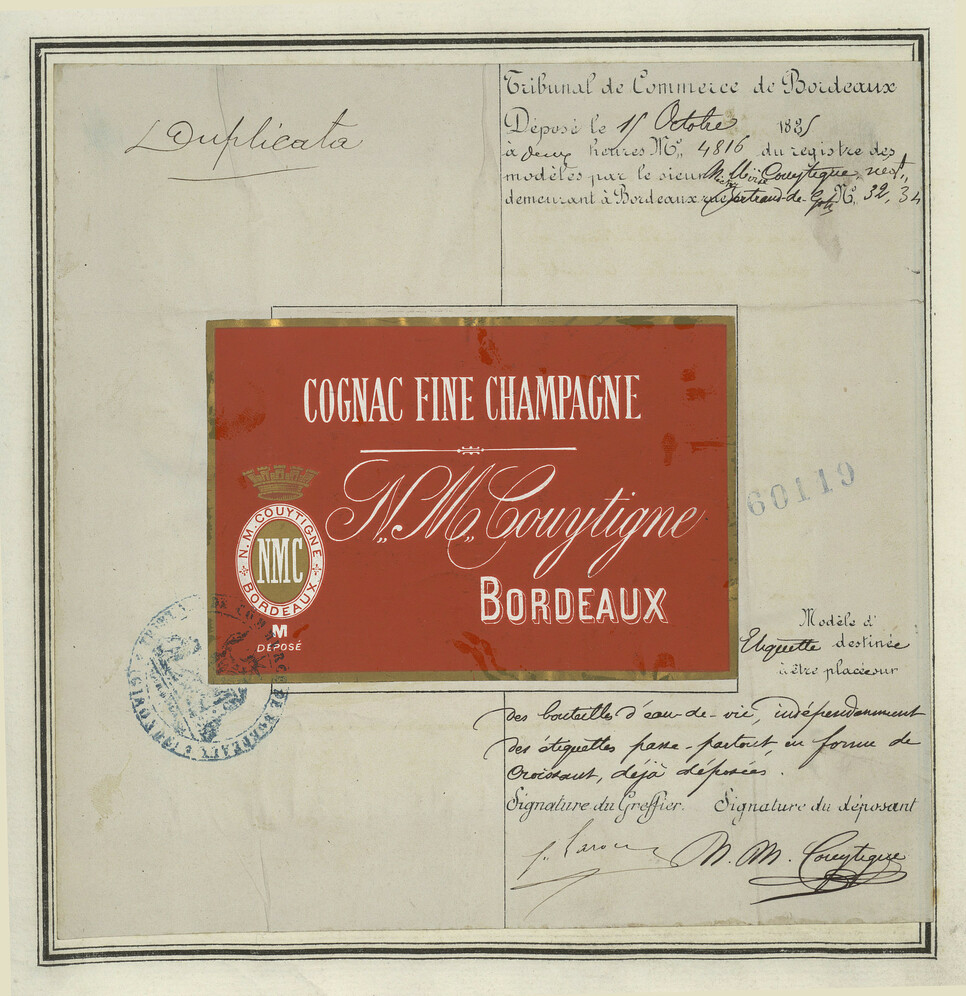 Duplicata
Tribunal de Commerce de Bordeaux
Déposé le 15 Octobre 1885
à deux heures No,, 4816 du registre des
modèles par le sieur Couytigne, négt.,
demeurant à Bordeaux rue Bertrand-de-Goth No, 32, 34
COGNAC FINE CHAMPAGNE
N„ M„ Couytigne
BORDEAUX
N. M. COUYTIGNE
NMC
BORDEAUX
M
DÉPOSÉ
60119
Modèle d'
Etiquette destinée
à être placée sur
des bouteilles d'eau-de-vie, indépendamment
des étiquettes passe-partout, en forme de
Croissant, déjà déposées.
Signature du Greffier. Signature du déposant
N. M. Couytigne